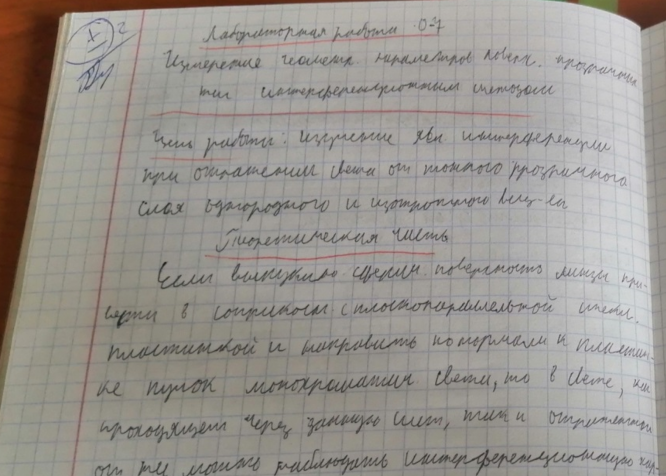 Лабораторная работа О-7
Измерение геометр. параметров поверх. прозрачных
тел интерференционным методом
Цель работы: изучение явл интерференции
при отражении света от тонкого прозрачного
слоя однородного и изотропного вещ-ва
Теоретическая часть
Если выпуклую сферич. поверхность линзы при-
вести в соприкосн с плоскопараллельной стекл.
пластинкой и направить по нормали к пластин-
ке пучок монохроматич света, то в свете, как
проходящем через данную сист, так и отраженном
от неё можно наблюдать интерференционную кар-